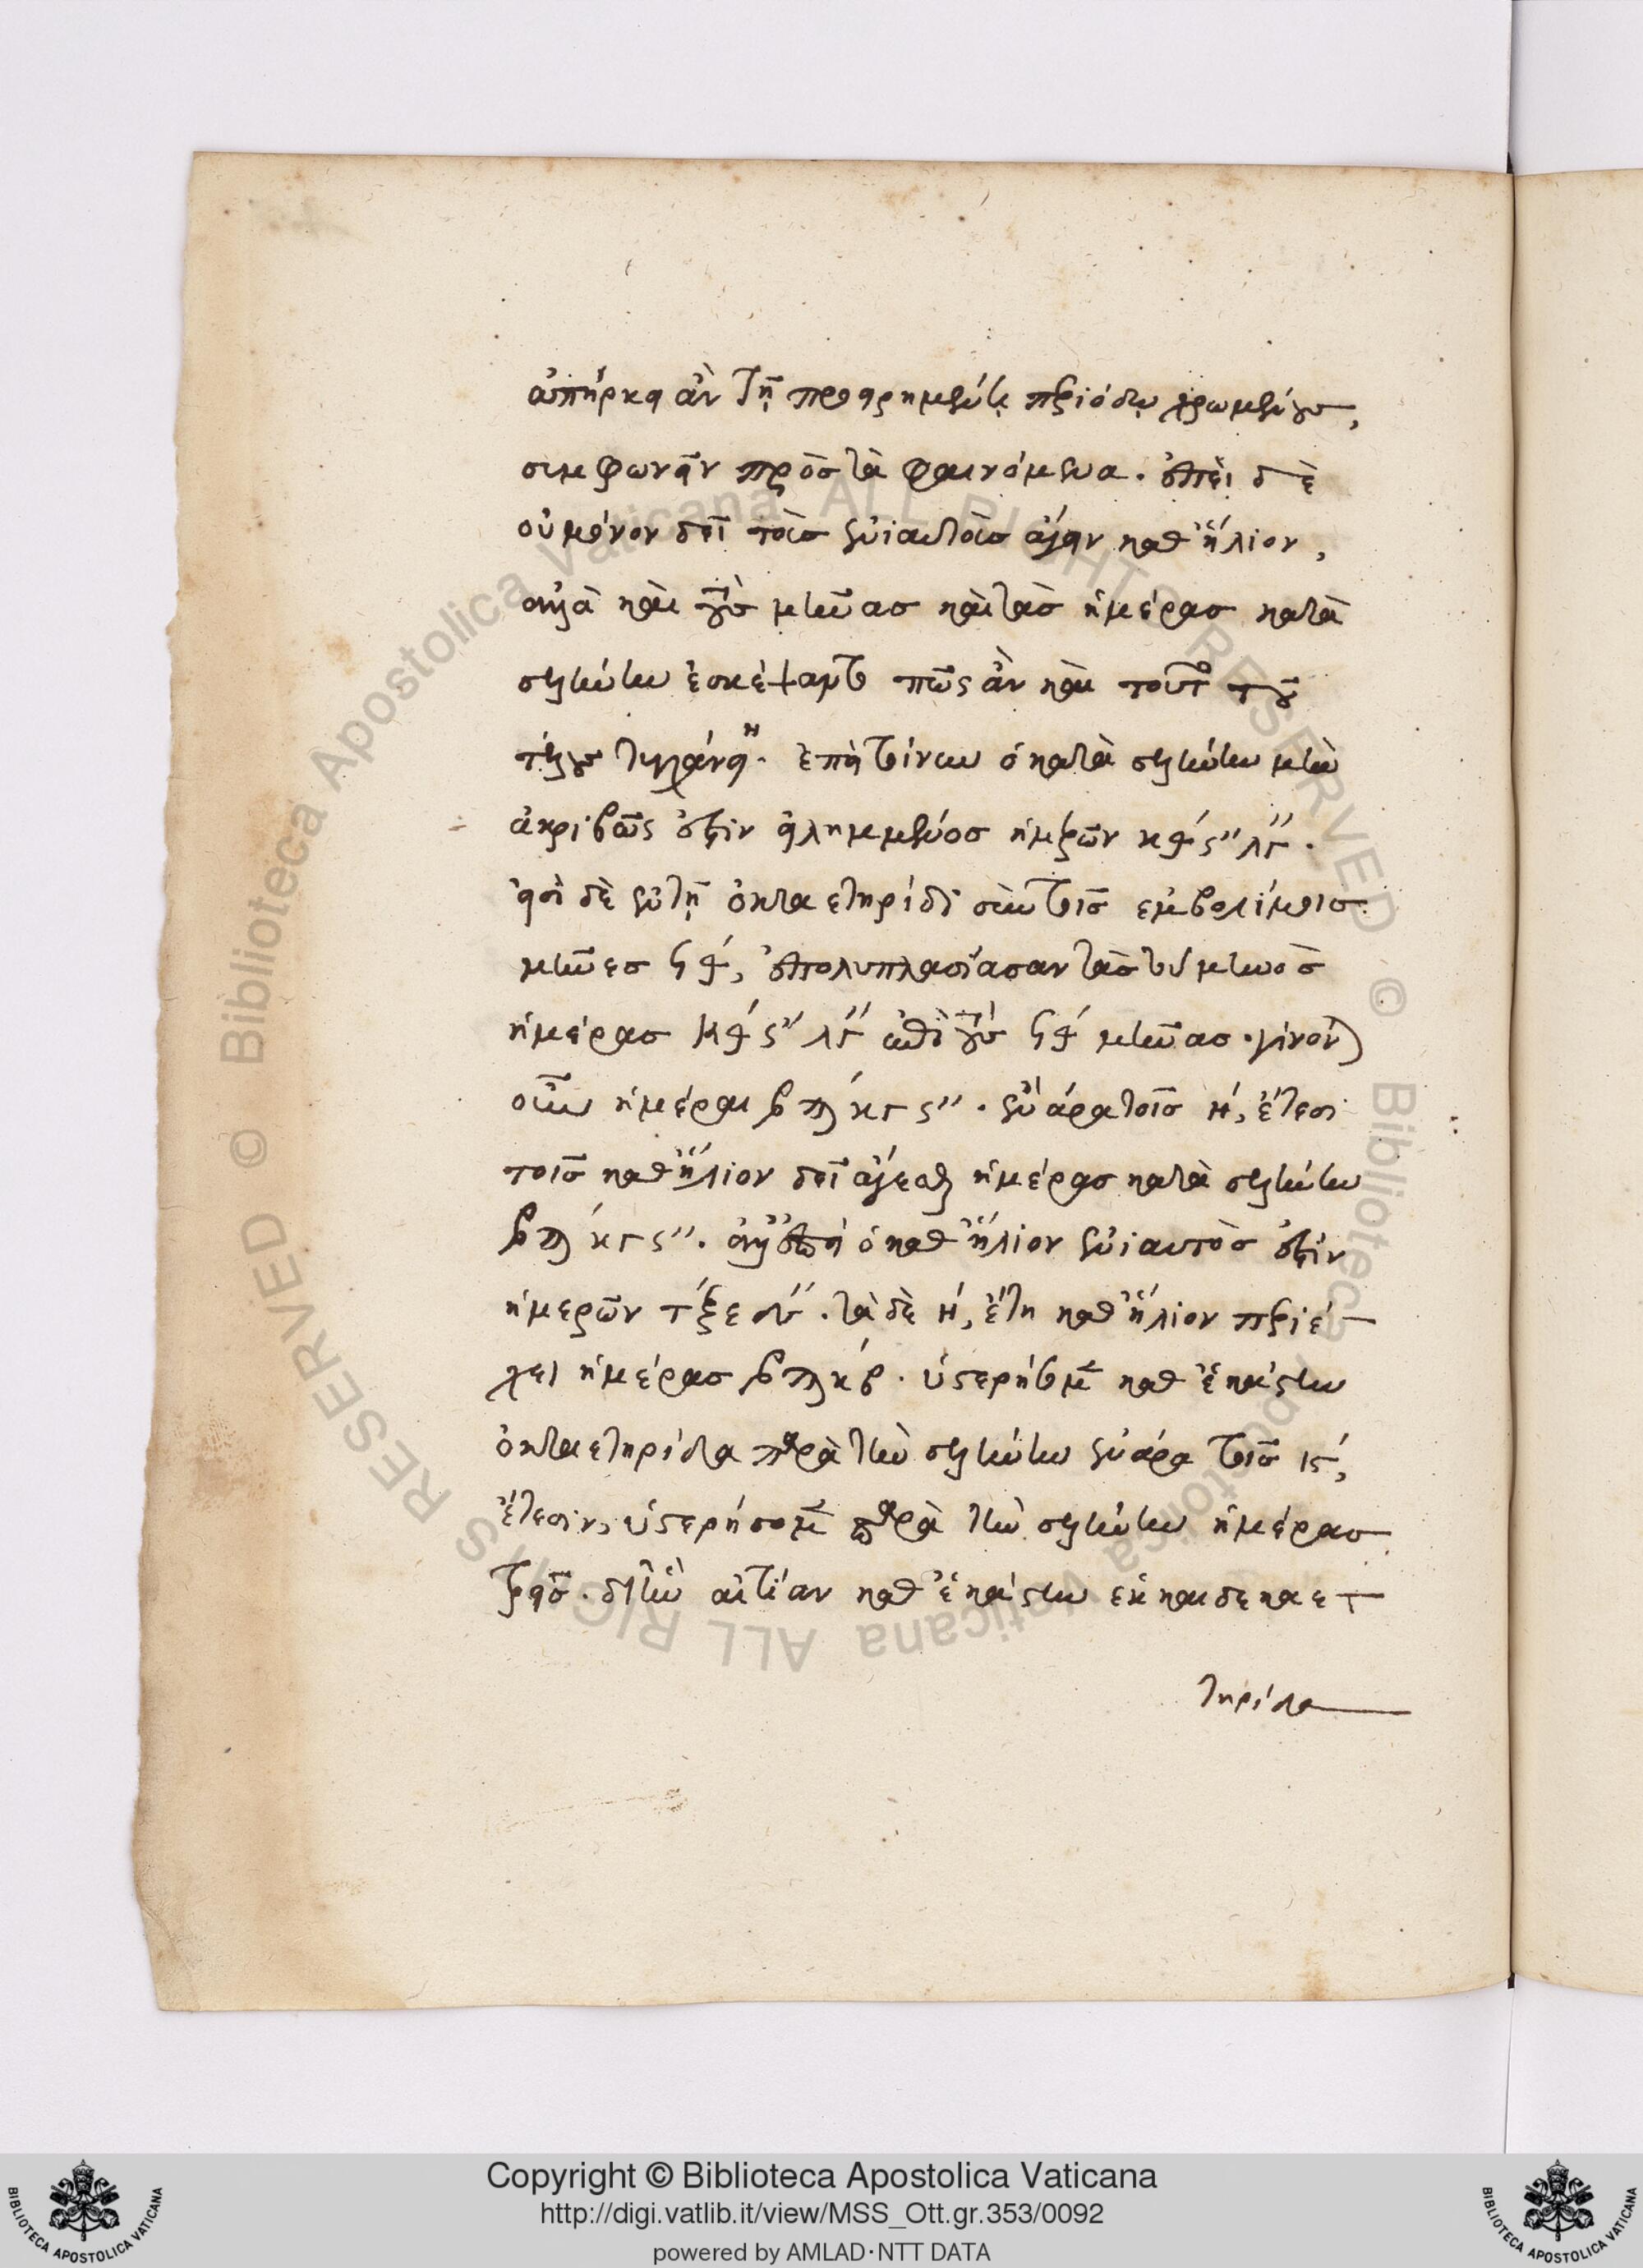 ἀπήρκει ἂν τῇ προειρημένῃ περιόδῳ χρωμένους,
συμφωνεῖν πρὸς τὰ φαινόμενα. ἐπεὶ δὲ
οὐ μόνον δεῖ τοὺς ἐνιαυτοὺς ἄγειν καθ' ἥλιον,
ἀλλὰ καὶ τοὺς μῆνας καὶ τὰς ἡμέρας κατὰ
σελήνην ἐσκέψαντο πῶς ἂν καὶ τοῦτο τοῦ
τέλους τυγχάνῃ. ἐπεὶ τοίνυν ὁ κατὰ σελήνην μὴν
ἀκριβῶς ἐστὶν εἰλημμένος ἡμερῶν κθ́ ϛ″ λγ″.
εἰσὶ δὲ ἐν τῇ ὀκταετηρίδι σὺν τοῖς ἐμβολίμοις
μῆνες ϟθ́, ἐπολυπλασίασαν τὰς τοῦ μηνὸς
ἡμέρας κθ́ ϛ″ λγ″ ἐπὶ τοὺς ϟθ́ μῆνας. γίνονται
οὖν ἡμέραι βϡκγ ϛ″. ἐν ἄρα τοῖς ή, ἔτεσι
τοῖς καθ' ἥλιον δεῖ ἄγεσθαι ἡμέρας κατὰ σελήνην
βϡκγ ϛ″. ἀλλ' ἐπεὶ ὁ καθ' ἥλιον ἐνιαυτὸς ἐστὶν
ἡμερῶν τξε δ″. τὰ δὲ ή, ἔτη καθ' ἥλιον περιέ-
χει ἡμέρας βϡκβ. ὑστερήσομεν καθ' ἑκάστην
ὀκταετηρίδα παρὰ τὴν σελήνην ἐν ἄρα τοῖς ιϛ́,
ἔτεσιν, ὑστερήσομεν παρὰ τὴν σελήνην ἡμέρας
τρεῖς. δι' ἣν αἰτίαν καθ' ἑκάστην ἑκκαιδεκαετ-
τηρίδα